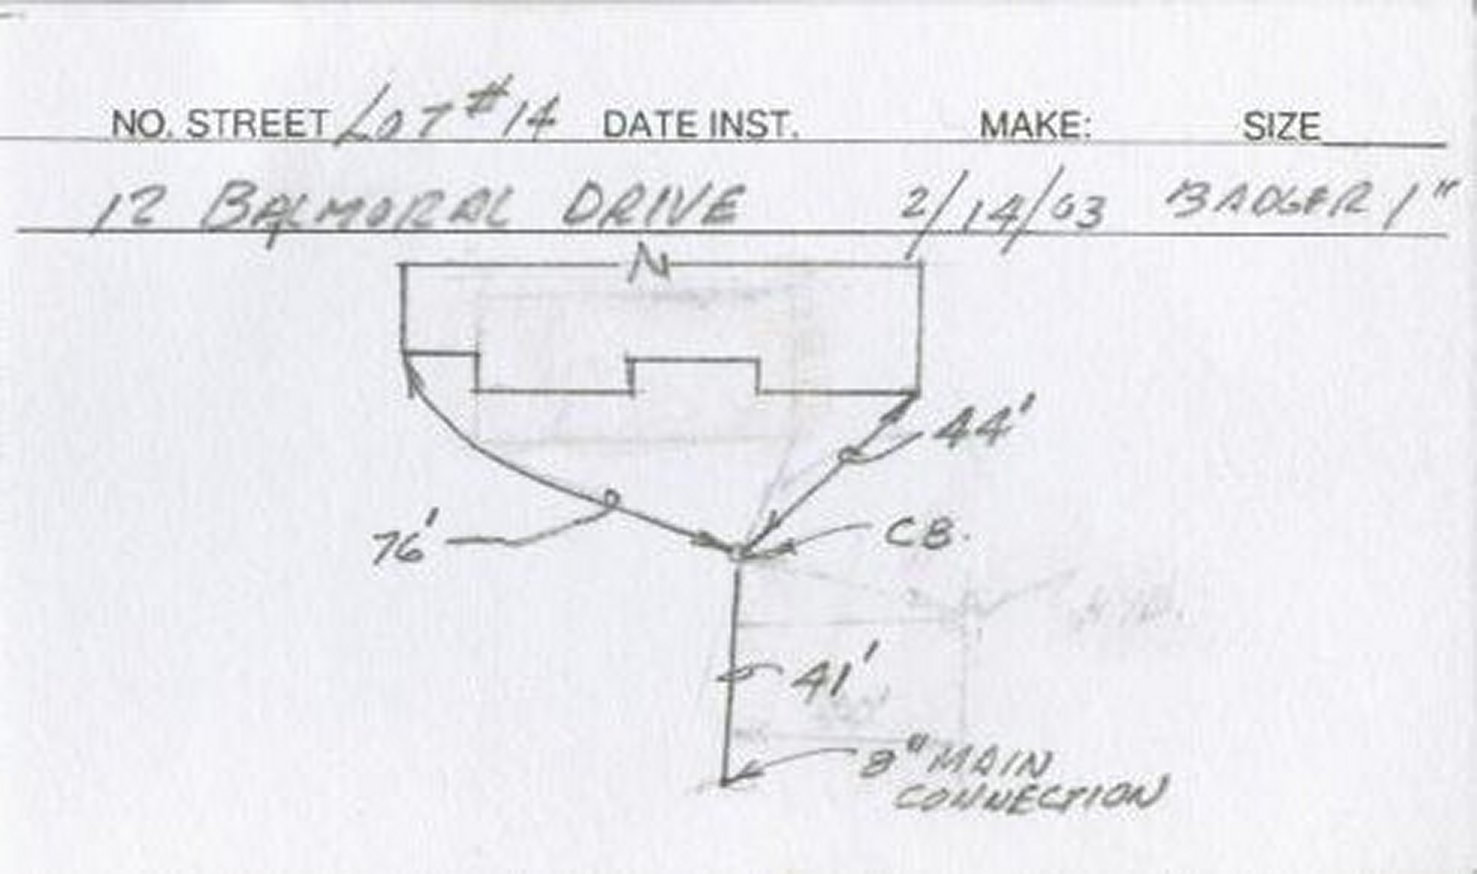 NO. STREET LOT #14 DATE INST. MAKE: SIZE
12 BALMORAL DRIVE 2/14/03 BADGER 1"
N
44'
76'
CB.
41'
8" MAIN
CONNECTION